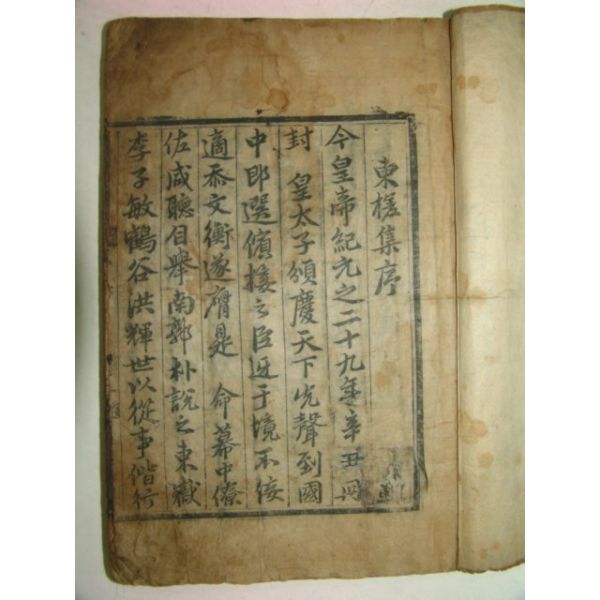 東槎集序
今皇帝紀元之二十九年辛丑冊
封 皇太子頒慶天下先聲到國
中即選儐接之臣迓于境不佞
適忝文衡遂膺是 命幕中僚
佐咸聽自舉南郭朴說之東嶽
李子敏鶴谷洪輝世以從事偕行